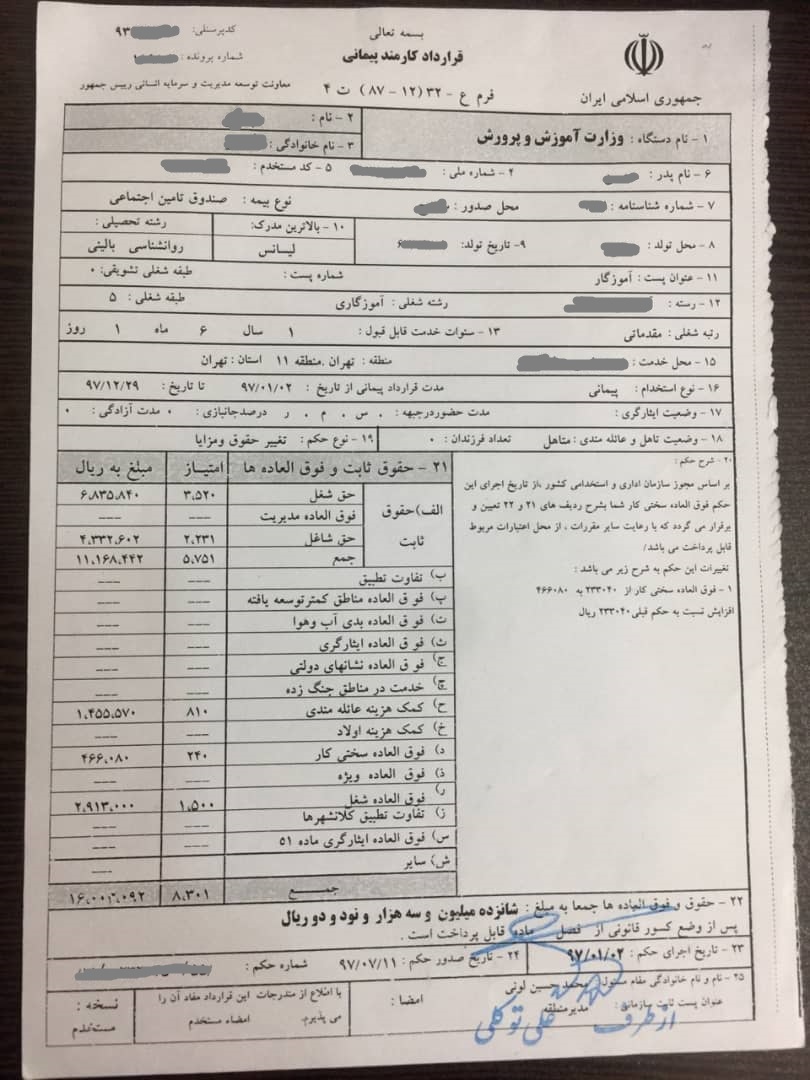 بسمه تعالی
قرارداد کارمند پیمانی
کدپرسنلی: ۹۳
شماره پرونده :
جمهوری اسلامی ایران
فرم ع - ۳۲ (۱۲ - ۸۷) ت ۴
معاونت توسعه مدیریت و سرمایه انسانی رییس جمهور
۱ - نام دستگاه : وزارت آموزش و پرورش
۲ - نام :
۳ - نام خانوادگی :
۶ - نام پدر :
۴ - شماره ملی :
۵ - کد مستخدم :
۷ - شماره شناسنامه :
محل صدور :
نوع بیمه : صندوق تامین اجتماعی
۸ - محل تولد :
۹- تاریخ تولد:
۱۰ - بالاترین مدرک:
لیسانس
رشته تحصیلی :
روانشناسی بالینی
۱۱ - عنوان پست : آموزگار
شماره پست :
طبقه شغلی تشویقی: ۰
۱۲ - رسته :
رشته شغلی : آموزگاری
طبقه شغلی : ۵
رتبه شغلی : مقدماتی
۱۳ - سنوات خدمت قابل قبول : ۱ سال ۶ ماه ۱ روز
۱۵ - محل خدمت :
منطقه : تهران .منطقه ۱۱ استان : تهران
۱۶ - نوع استخدام : پیمانی
مدت قرارداد پیمانی از تاریخ : ۹۷/۰۱/۰۲ تا تاریخ : ۹۷/۱۲/۲۹
۱۷ - وضعیت ایثارگری : مدت حضوردرجبهه : . س . م . ر درصدجانبازی : ۰ مدت آزادگی : ۰
۱۸ - وضعیت تاهل و عائله مندی : متاهل تعداد فرزندان : ۰
۱۹ - نوع حکم : تغییر حقوق ومزایا
۲۰ - شرح حکم :
بر اساس مجوز سازمان اداری و استخدامی کشور ،از تاریخ اجرای این
حکم فوق العاده سختی کار شما بشرح ردیف های ۲۱ و ۲۲ تعیین و
برقرار می گردد که با رعایت سایر مقررات ، از محل اعتبارات مربوط
قابل پرداخت می باشد/
تغییرات این حکم به شرح زیر می باشد :
۱ - فوق العاده سختی کار از ۲۳۳۰۴۰ به ۴۶۶۰۸۰
افزایش نسبت به حکم قبلی ۲۳۳۰۴۰ ریال
۲۱ - حقوق ثابت و فوق العاده ها امتیاز مبلغ به ریال
الف)حقوق
ثابت
حق شغل ۳،۵۲۰ ۶،۸۳۵،۸۴۰
فوق العاده مدیریت --- ---
حق شاغل ۲،۲۳۱ ۴،۳۳۲،۶۰۲
جمع ۵،۷۵۱ ۱۱،۱۶۸،۴۴۲
ب) تفاوت تطبیق --- ---
پ) فوق العاده مناطق کمترتوسعه یافته --- ---
ت) فوق العاده بدی آب وهوا --- ---
ث) فوق العاده ایثارگری --- ---
ج) فوق العاده نشانهای دولتی --- ---
چ) خدمت در مناطق جنگ زده --- ---
ح) کمک هزینه عائله مندی ۸۱۰ ۱،۴۵۵،۵۷۰
خ) کمک هزینه اولاد --- ---
د) فوق العاده سختی کار ۲۴۰ ۴۶۶،۰۸۰
ذ) فوق العاده ویژه --- ---
ر) فوق العاده شغل ۱،۵۰۰ ۲،۹۱۳،۰۰۰
ز) تفاوت تطبیق کلانشهرها --- ---
س) فوق العاده ایثارگری ماده ۵۱ --- ---
ش) سایر ---
جمـــع ۸،۳۰۱ ۱۶،۰۰۳،۰۹۲
۲۲ - حقوق و فوق العاده ها جمعا به مبلغ : شانزده میلیون و سه هزار و نود و دو ریال
پس از وضع کسور قانونی از فصل ماده قابل پرداخت است .
۲۳ - تاریخ اجرای حکم : ۹۷/۰۱/۰۲
۲۴ - تاریخ صدور حکم : ۹۷/۰۷/۱۱
شماره حکم :
۲۵ - نام و نام خانوادگی مقام مسئول : محمد حسین لونی
عنوان پست ثابت سازمانی : مدیرمنطقه
امضا :
با اطلاع از مندرجات این قرارداد مفاد آن را
می پذیرم. امضاء مستخدم
نسخه :
مستخدم
از طرف
علی توکلی